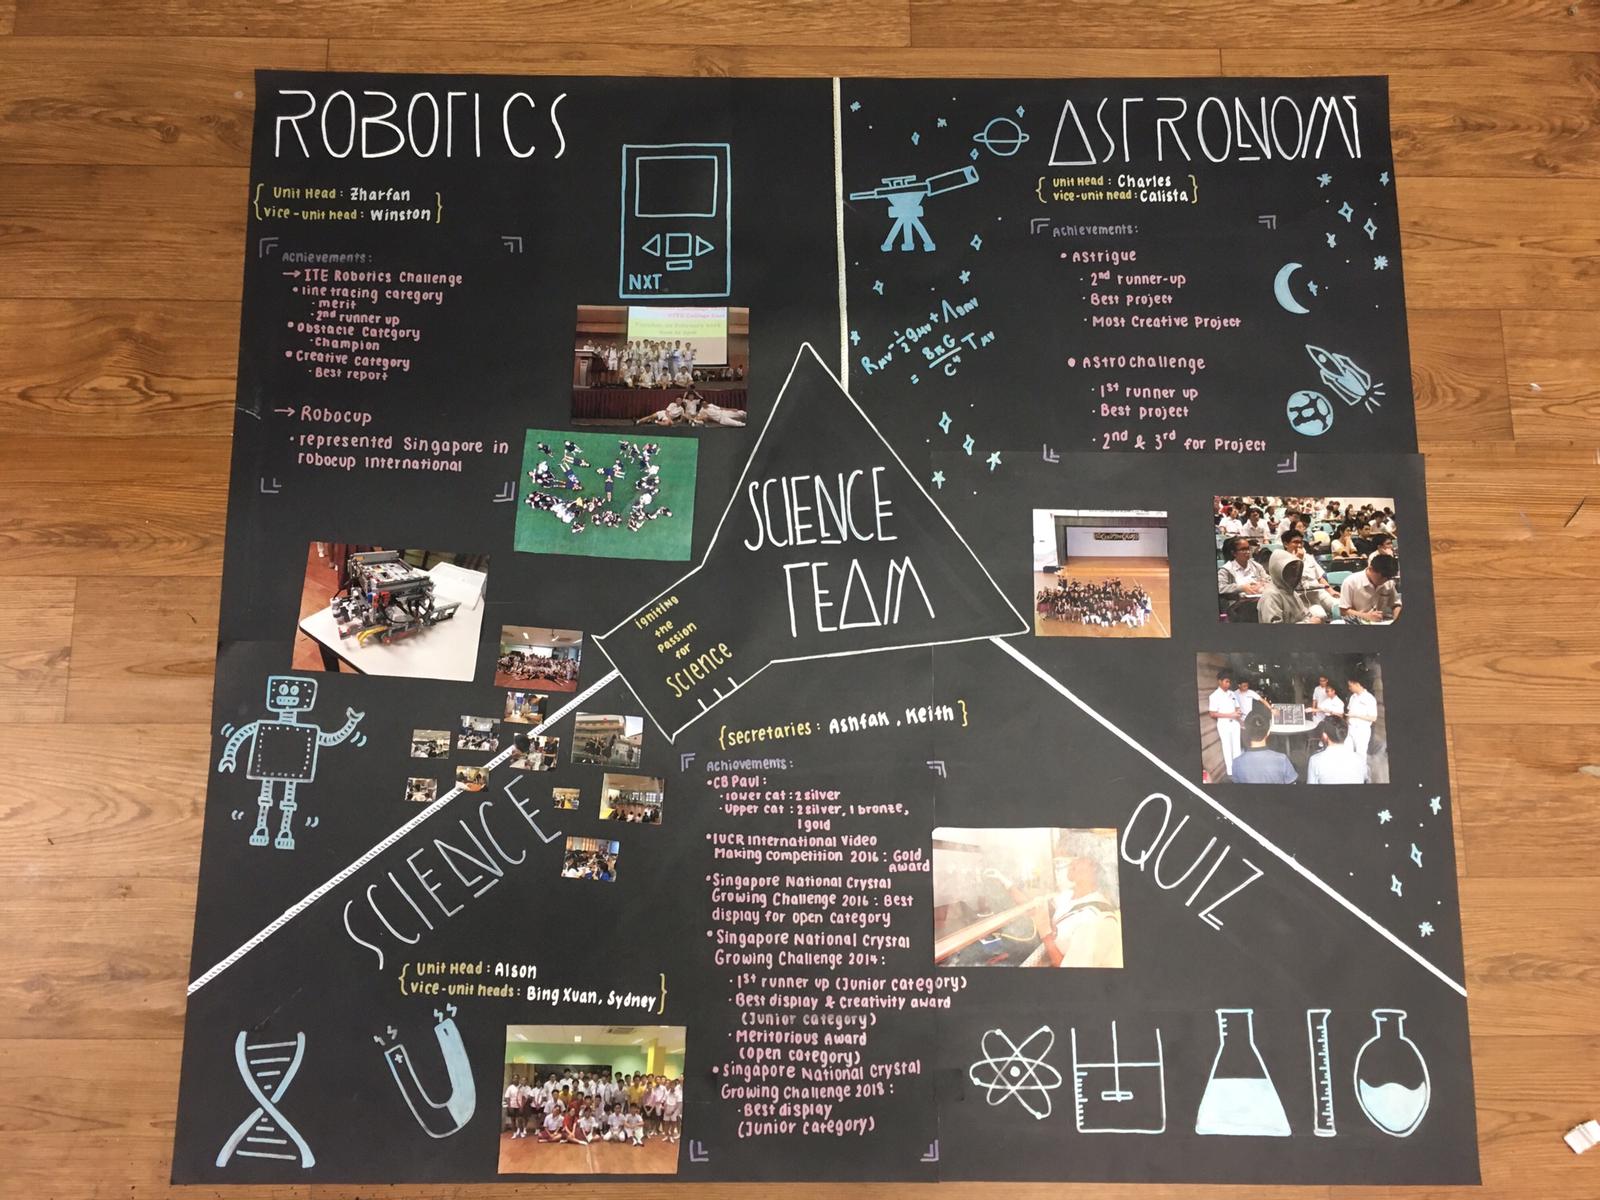 ROBOTICS
Unit Head: Zharfan
vice-unit head: Winston
Achievements:
→ ITE Robotics Challenge
• line tracing category
· merit
· 2nd runner up
• Obstacle Category
· Champion
• Creative Category
· Best report
→ Robocup
· represented Singapore in
robocup International
NXT
ASTRONOMY
unit Head: Charles
vice-unit head: Calista
Achievements:
• Astrigue
· 2nd runner-up
· Best Project
· Most Creative Project
• Astrochallenge
· 1st runner up
· Best project
· 2nd & 3rd for Project
Rμν - 1/2 gμν + Λgμν
= 8πG/C⁴ Tμν
SCIENCE
TEAM
igniting
the
passion
for
science
{secretaries: Ashfak, Keith}
Achievements:
• CB Paul:
· lower cat: 2 silver
· Upper cat: 2 silver, 1 bronze,
1 gold
• IUCR International Video
Making competition 2016: Gold
Award
• Singapore National Crystal
Growing Challenge 2016: Best
display for open category
• Singapore National Crystal
Growing Challenge 2014:
· 1st runner up (Junior category)
· Best display & Creativity award
(Junior category)
· Meritorious Award
(open category)
• Singapore National Crystal
Growing Challenge 2018:
· Best display
(Junior category)
SCIENCE
Unit Head: Alson
vice-unit heads: Bing Xuan, Sydney
QUIZ